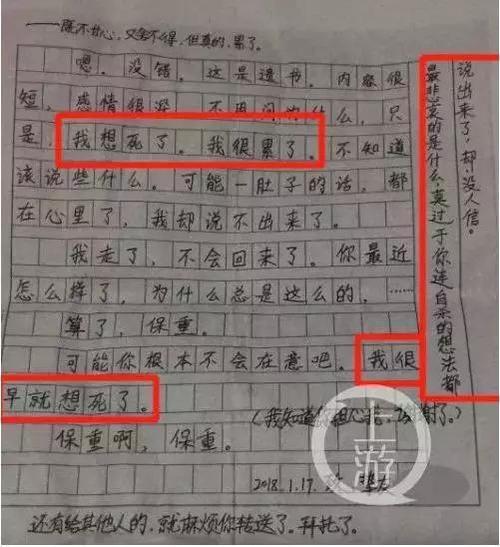 ——既不甘心，又舍不得，但真的，累了。
嗯。没错。这是遗书。内容很
短，感情很深。不用问为什么，只
是，我想死了。我很累了。不知道
该说些什么。可能一肚子的话，都
在心里了，我却说不出来了。
我走了，不会回来了。你最近
怎么样了，为什么总是这么的，……
算了，保重。
可能你根本不会在意吧。我很
早就想死了。
(我知道你担心我，谢谢了。)
保重啊，保重。
2018.1.17.
还有给其他人的，就麻烦你转送了。拜托了。
最悲哀的是什么，莫过于你连自杀的想法都
说出来了，却没人信。
上游